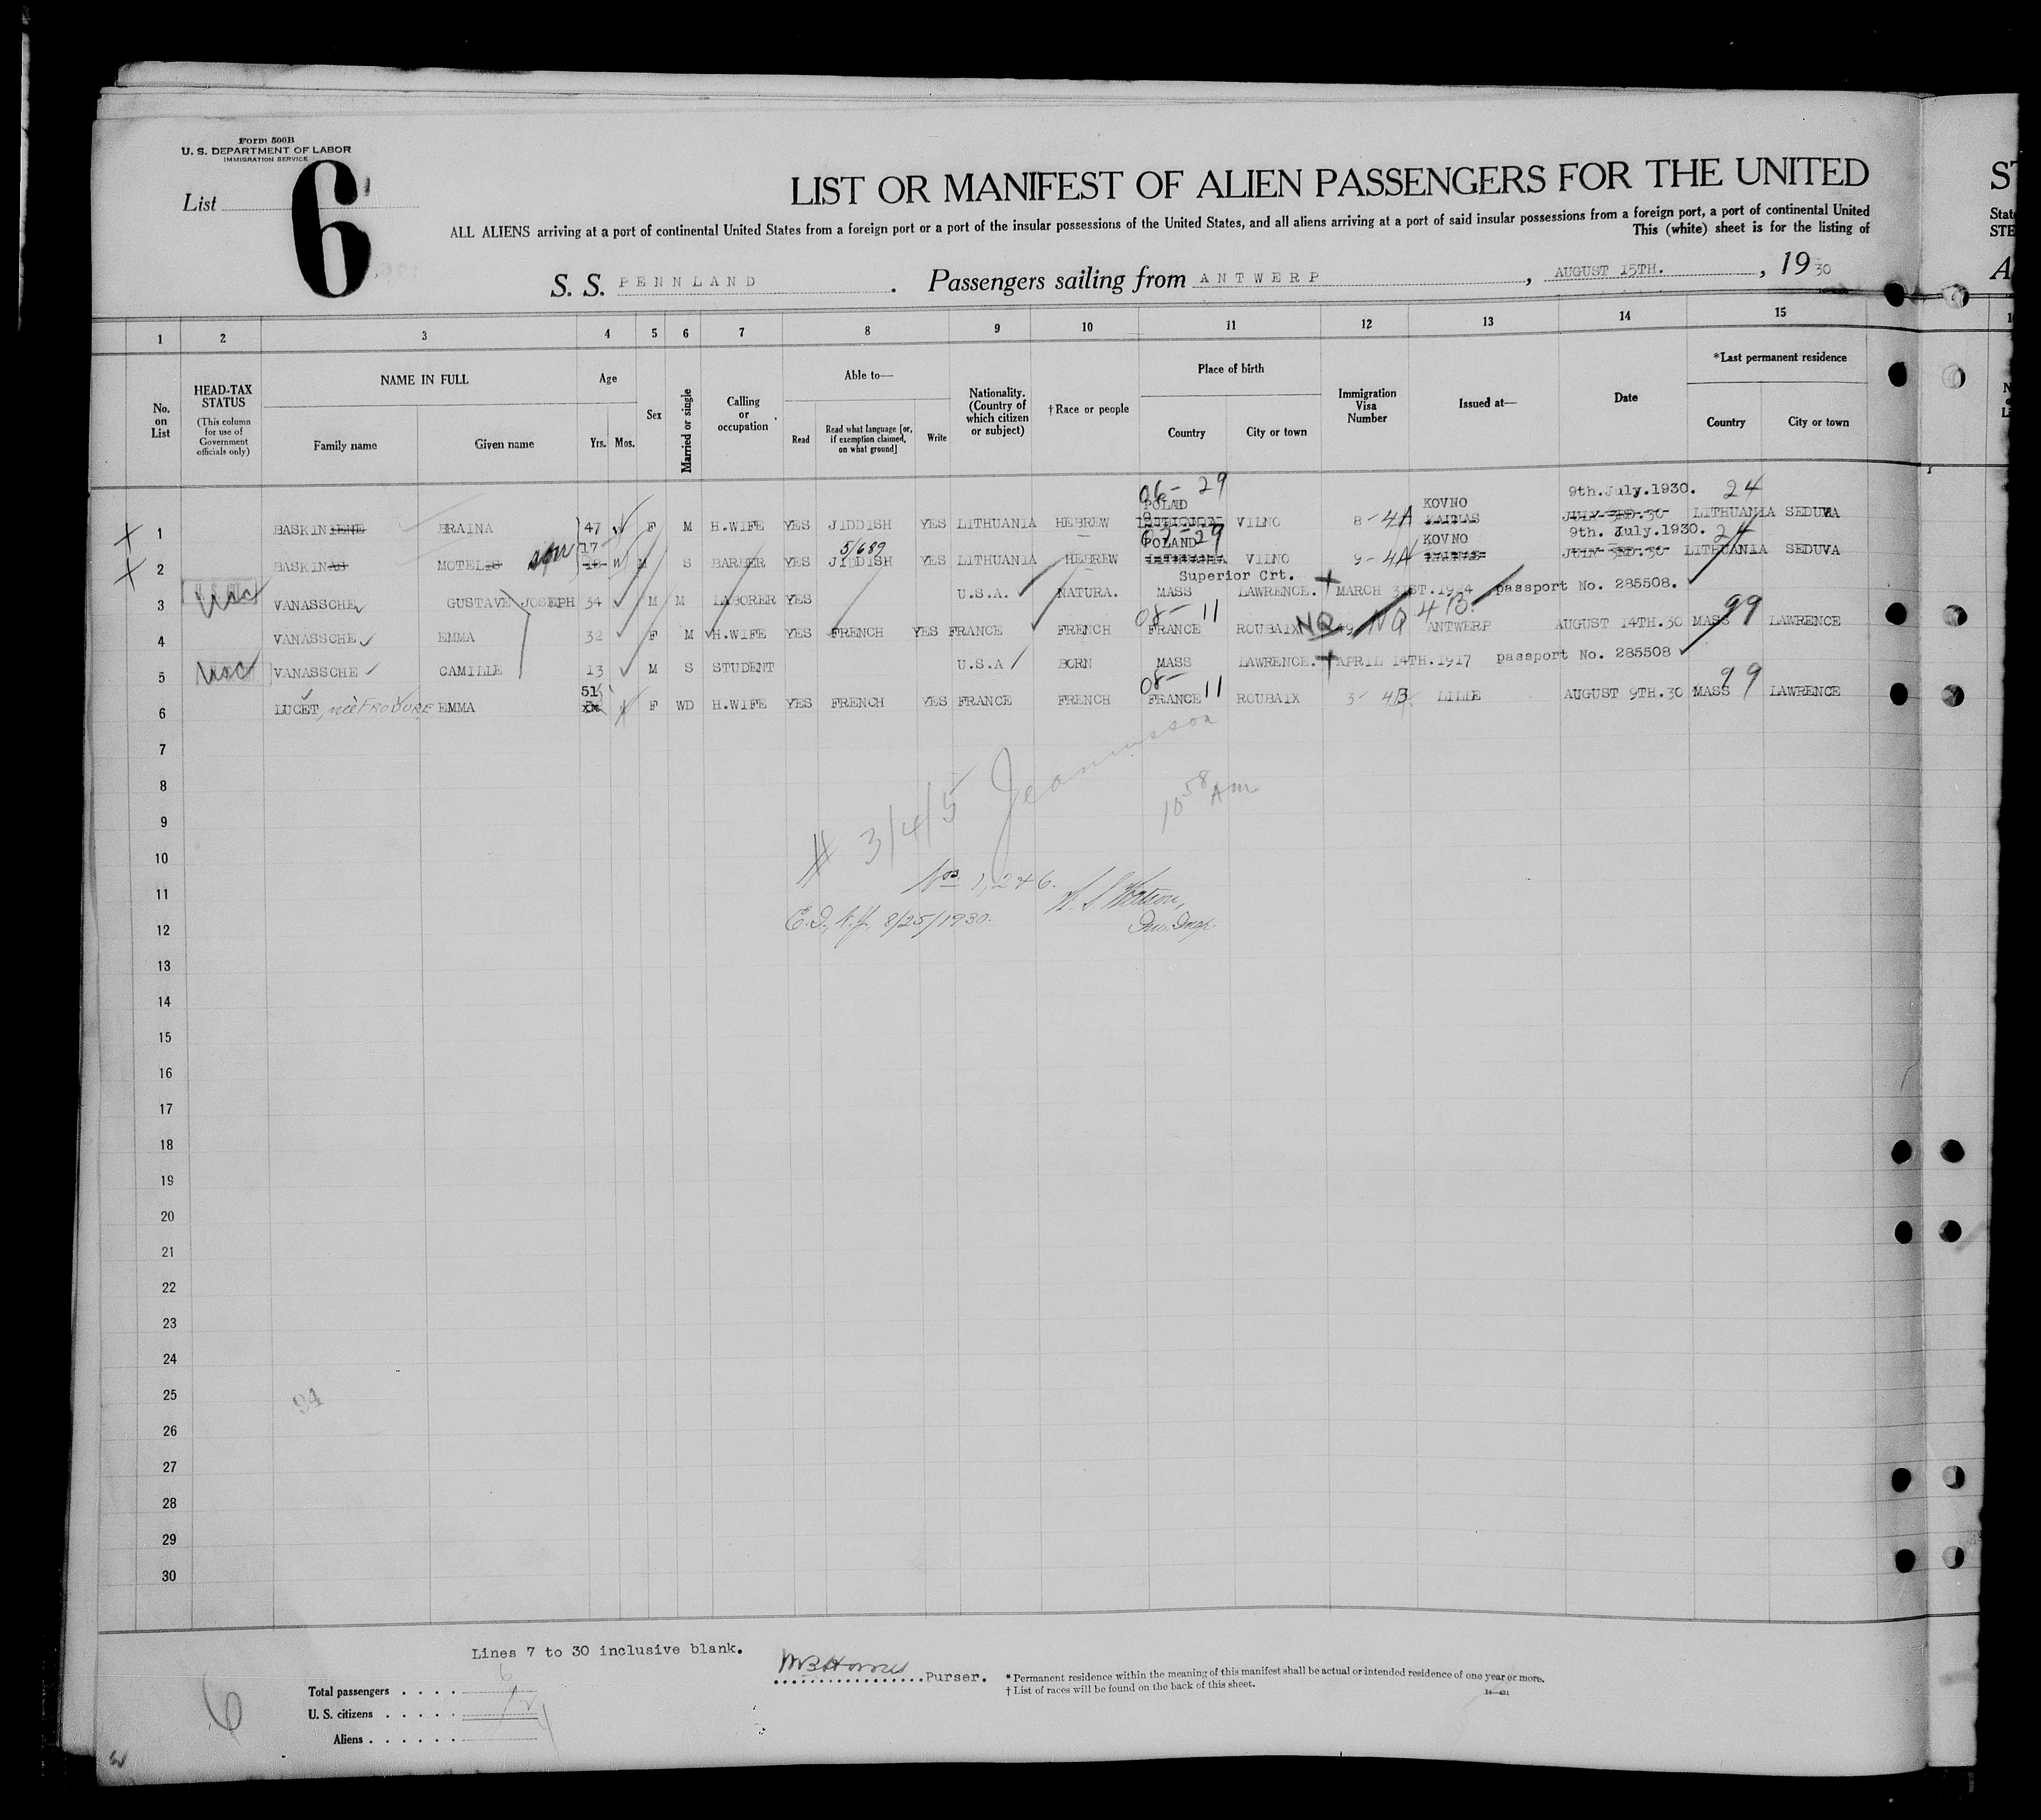 Form 500B
U. S. DEPARTMENT OF LABOR
IMMIGRATION SERVICE
List 6
LIST OR MANIFEST OF ALIEN PASSENGERS FOR THE UNITED
ALL ALIENS arriving at a port of continental United States from a foreign port or a port of the insular possessions of the United States, and all aliens arriving at a port of said insular possessions from a foreign port, a port of continental United
This (white) sheet is for the listing of
S. S. PENNLAND. Passengers sailing from ANTWERP, AUGUST 15TH., 1930
1 2 3 4 5 6 7 8 9 10 11 12 13 14 15
No. on List
HEAD-TAX STATUS (This column for use of Government officials only)
NAME IN FULL
Family name
Given name
Age
Yrs. Mos.
Sex
Married or single
Calling or occupation
Able to—
Read
Read what language [or, if exemption claimed, on what ground]
Write
Nationality. (Country of which citizen or subject)
†Race or people
Place of birth
Country
City or town
Immigration Visa Number
Issued at—
Date
*Last permanent residence
Country
City or town
06- 29
POLAD KOVNO 9th.July.1930. 24
1 BASKINIENE BRAINA 47 F M H.WIFE YES JIDDISH YES LITHUANIA HEBREW VILNO 8-4A KAUNAS JULY 3RD.30 LITHUANIA SEDUVA
son 17 5/689 POLAND 29 KOVNO 9th. July.1930. 24
2 BASKINAS MOTELIS 18 M S BARBER YES JIDDISH YES LITHUANIA HEBREW LITHUANIA VILNO 9-4A KAUNAS JULY 3RD.30 LITHUANIA SEDUVA
Superior Crt.
3 USC VANASSCHE GUSTAVE JOSEPH 34 M M LABORER YES U.S.A. NATURA. MASS LAWRENCE. MARCH 31ST.1924 passport No. 285508.
08- 11 NQ NQ 4B. 99
4 VANASSCHE EMMA 32 F M H.WIFE YES FRENCH YES FRANCE FRENCH FRANCE ROUBAIX ANTWERP AUGUST 14TH.30 MASS LAWRENCE
5 USC VANASSCHE CAMILLE 13 M S STUDENT U.S.A BORN MASS LAWRENCE. APRIL 14TH.1917 passport No. 285508
51 08- 11 99
6 LUCET, née FRODURE EMMA F WD H.WIFE YES FRENCH YES FRANCE FRENCH FRANCE ROUBAIX 3- 4B. LILLE AUGUST 9TH.30 MASS LAWRENCE
7
8
9
10
11
12
13
14
15
16
17
18
19
20
21
22
23
24
25
26
27
28
29
30
# 3/4/5
10 58 AM
Nos 1, 2 & 6.
E.I., N.Y., 8/25/1930.
W. S. Watson,
Imm. Insp.
94
Lines 7 to 30 inclusive blank.
Purser.
* Permanent residence within the meaning of this manifest shall be actual or intended residence of one year or more.
† List of races will be found on the back of this sheet.
6
Total passengers . . . . 6
U. S. citizens . . . . . 2
Aliens . . . . . . 4